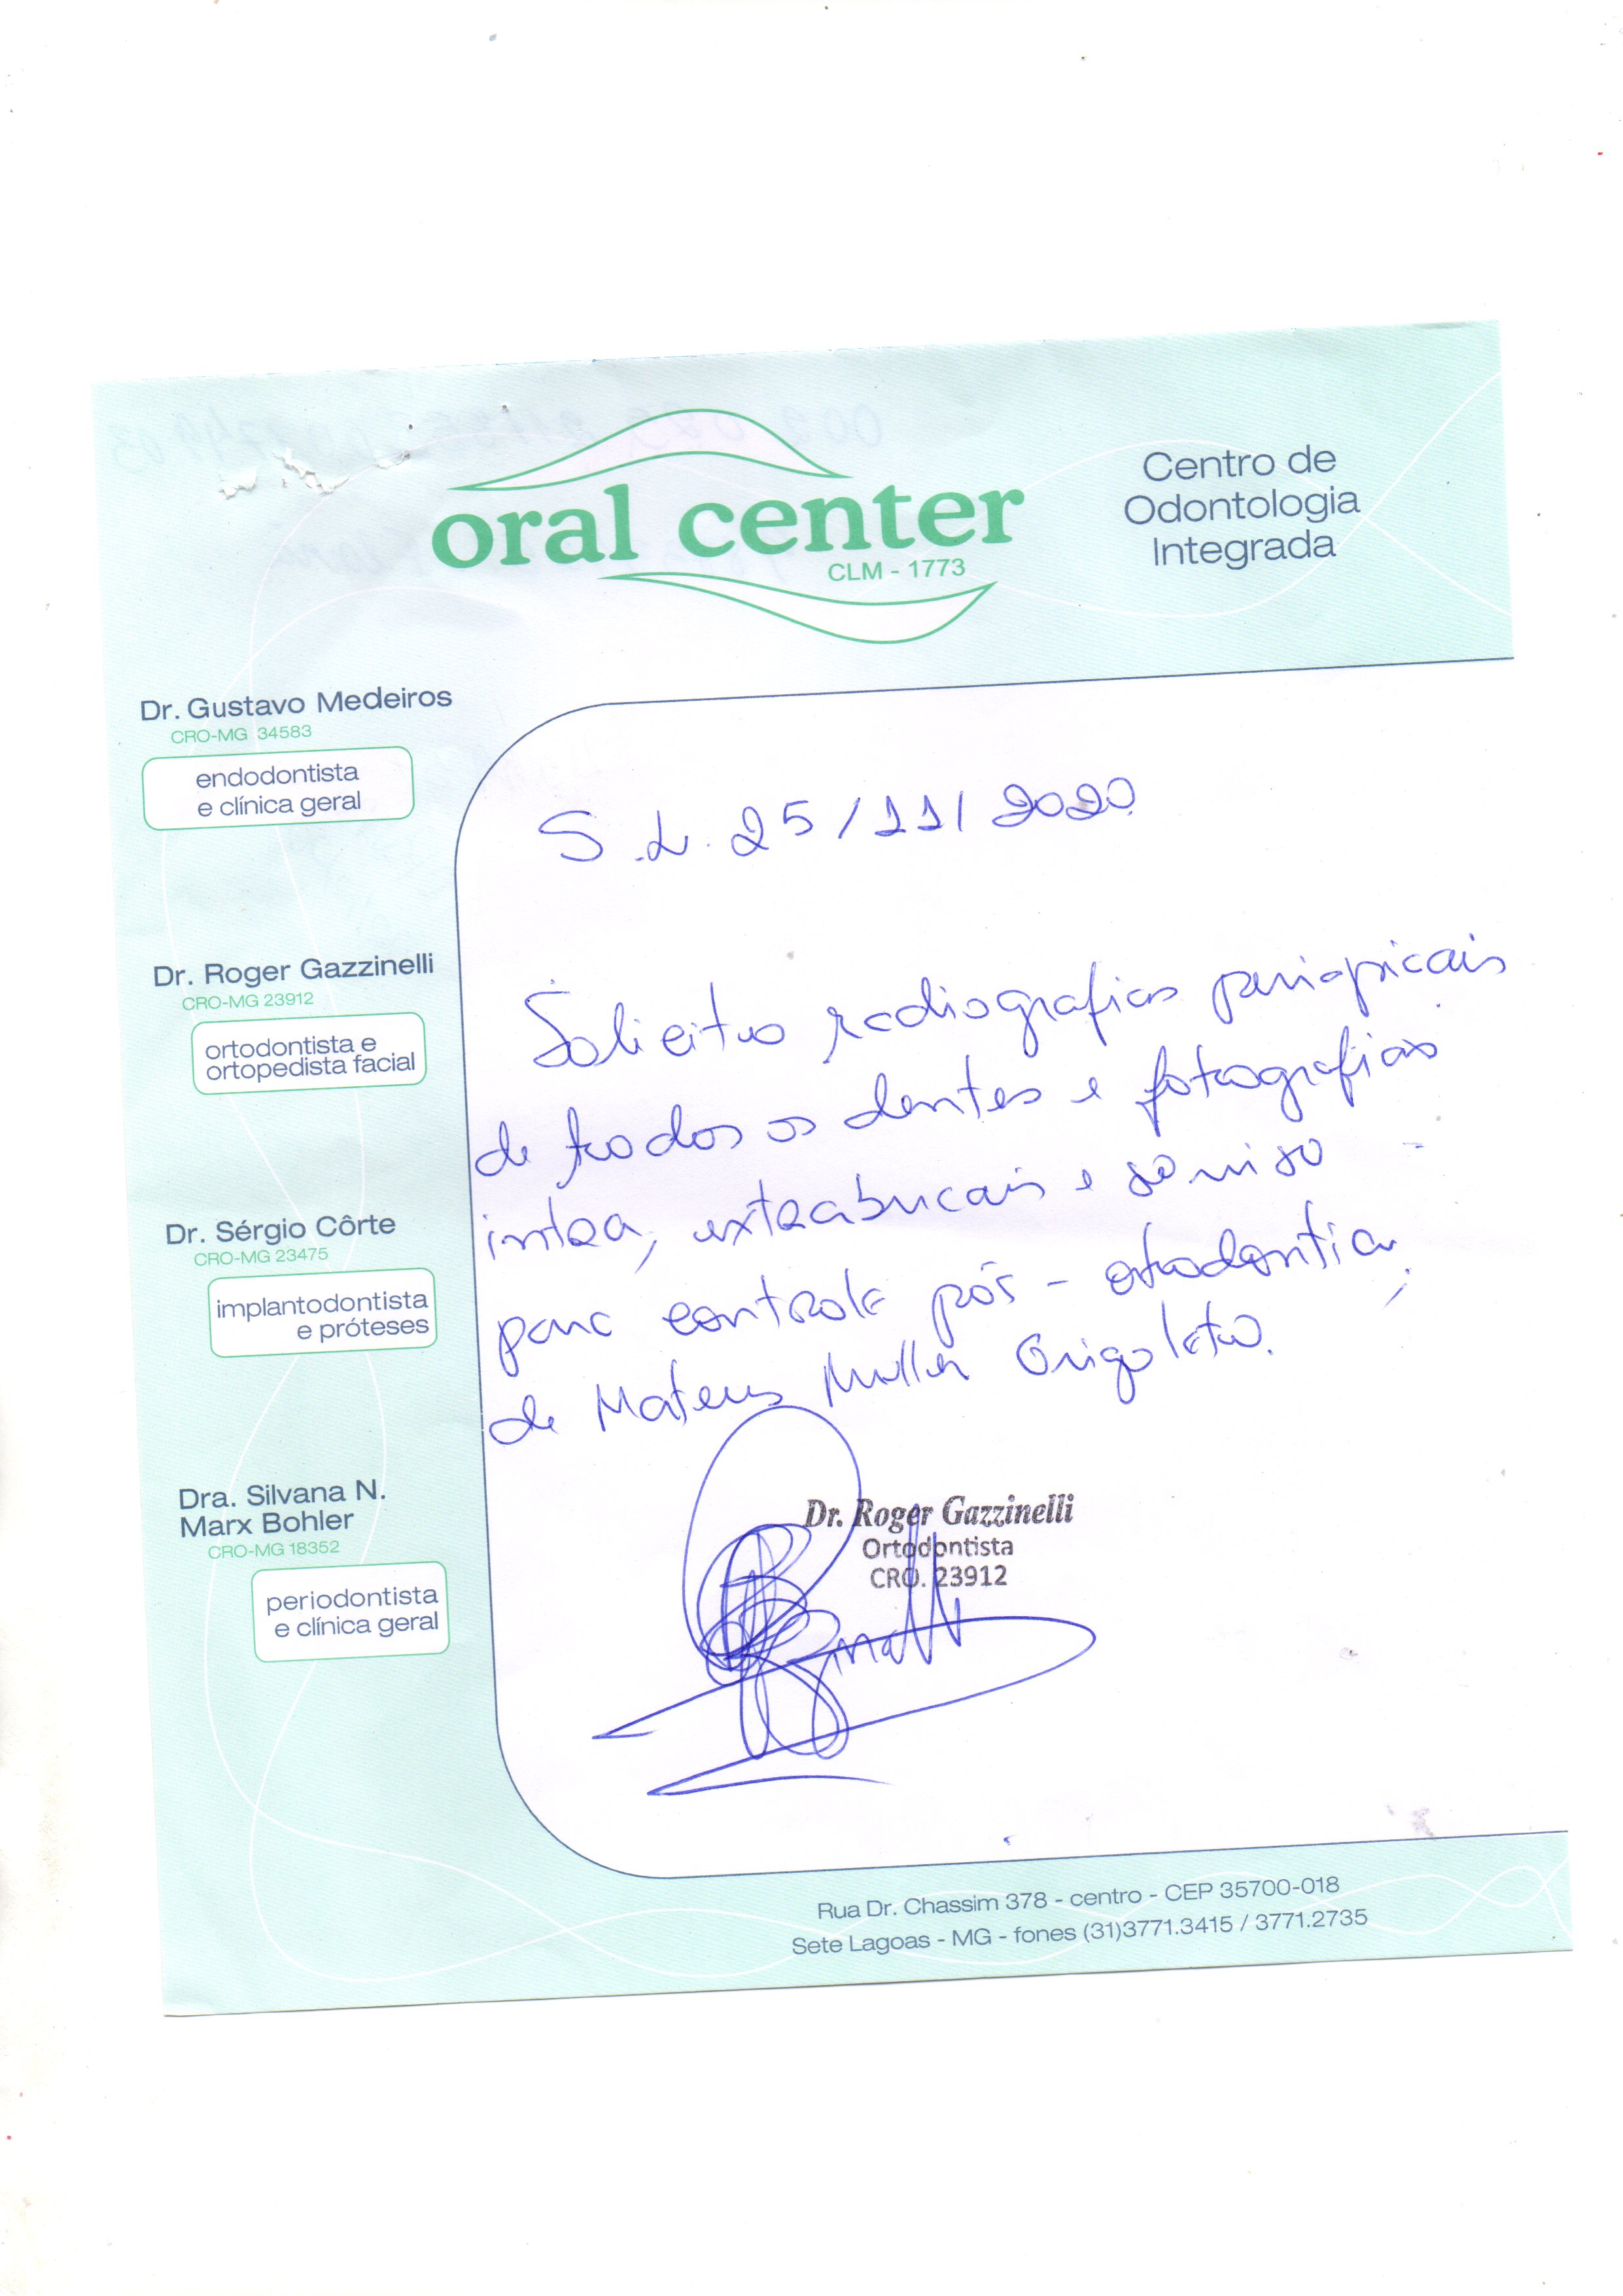 oral center
CLM - 1773
Centro de
Odontologia
Integrada
Dr. Gustavo Medeiros
CRO-MG 34583
endodontista
e clínica geral
Dr. Roger Gazzinelli
CRO-MG 23912
ortodontista e
ortopedista facial
Dr. Sérgio Côrte
CRO-MG 23475
implantodontista
e próteses
Dra. Silvana N.
Marx Bohler
CRO-MG 18352
periodontista
e clínica geral
S.L. 25/11/2020
Solicito radiografias periapicais
de todos os dentes e fotografias
intra, extrabucais e sorriso
para controle pós-ortodontia,
de Mateus Muller Origoleto.
Dr. Roger Gazzinelli
Ortodontista
CRO. 23912
Rua Dr. Chassim 378 - centro - CEP 35700-018
Sete Lagoas - MG - fones (31)3771.3415 / 3771.2735